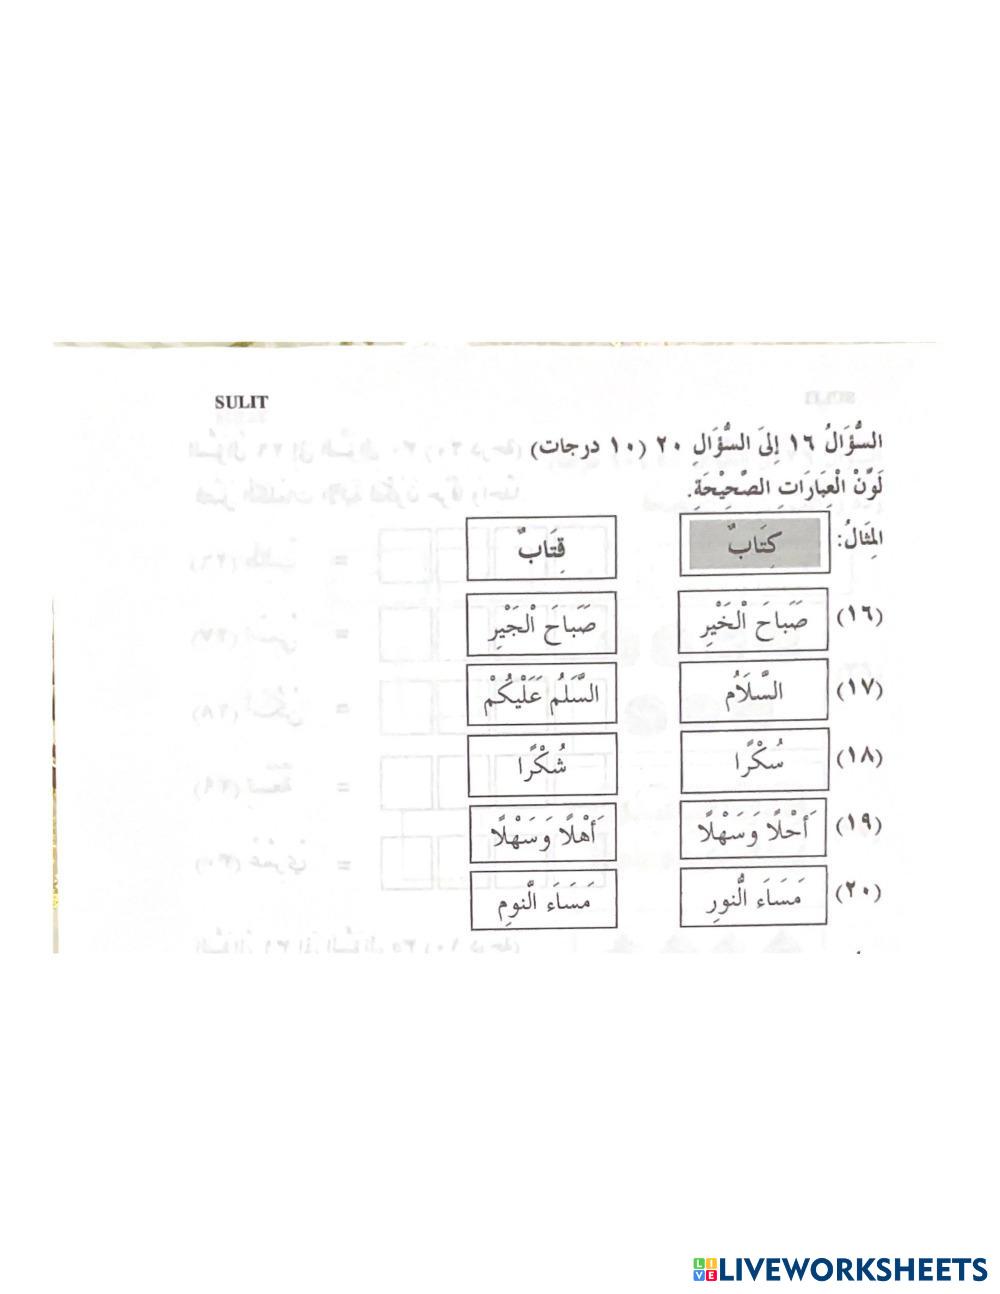 SULIT
السُّؤَالُ ١٦ إِلىَ السُّؤَالِ ٢٠ (١٠ درجات)
لَوِّنْ الْعِبَارَاتِ الصَّحِيْحَةِ.
المِثَالُ: كِتَابٌ قِتَابٌ
(١٦) صَبَاحَ الْخَيْرِ صَبَاحَ الْجَيْرِ
(١٧) السَّلَامُ السَّلَمُ عَلَيْكُمْ
(١٨) سُكْرًا شُكْرًا
(١٩) أَحْلًا وَسَهْلًا أَهْلًا وَسَهْلًا
(٢٠) مَسَاءَ النُّورِ مَسَاءَ النَّومِ
LIVEWORKSHEETS